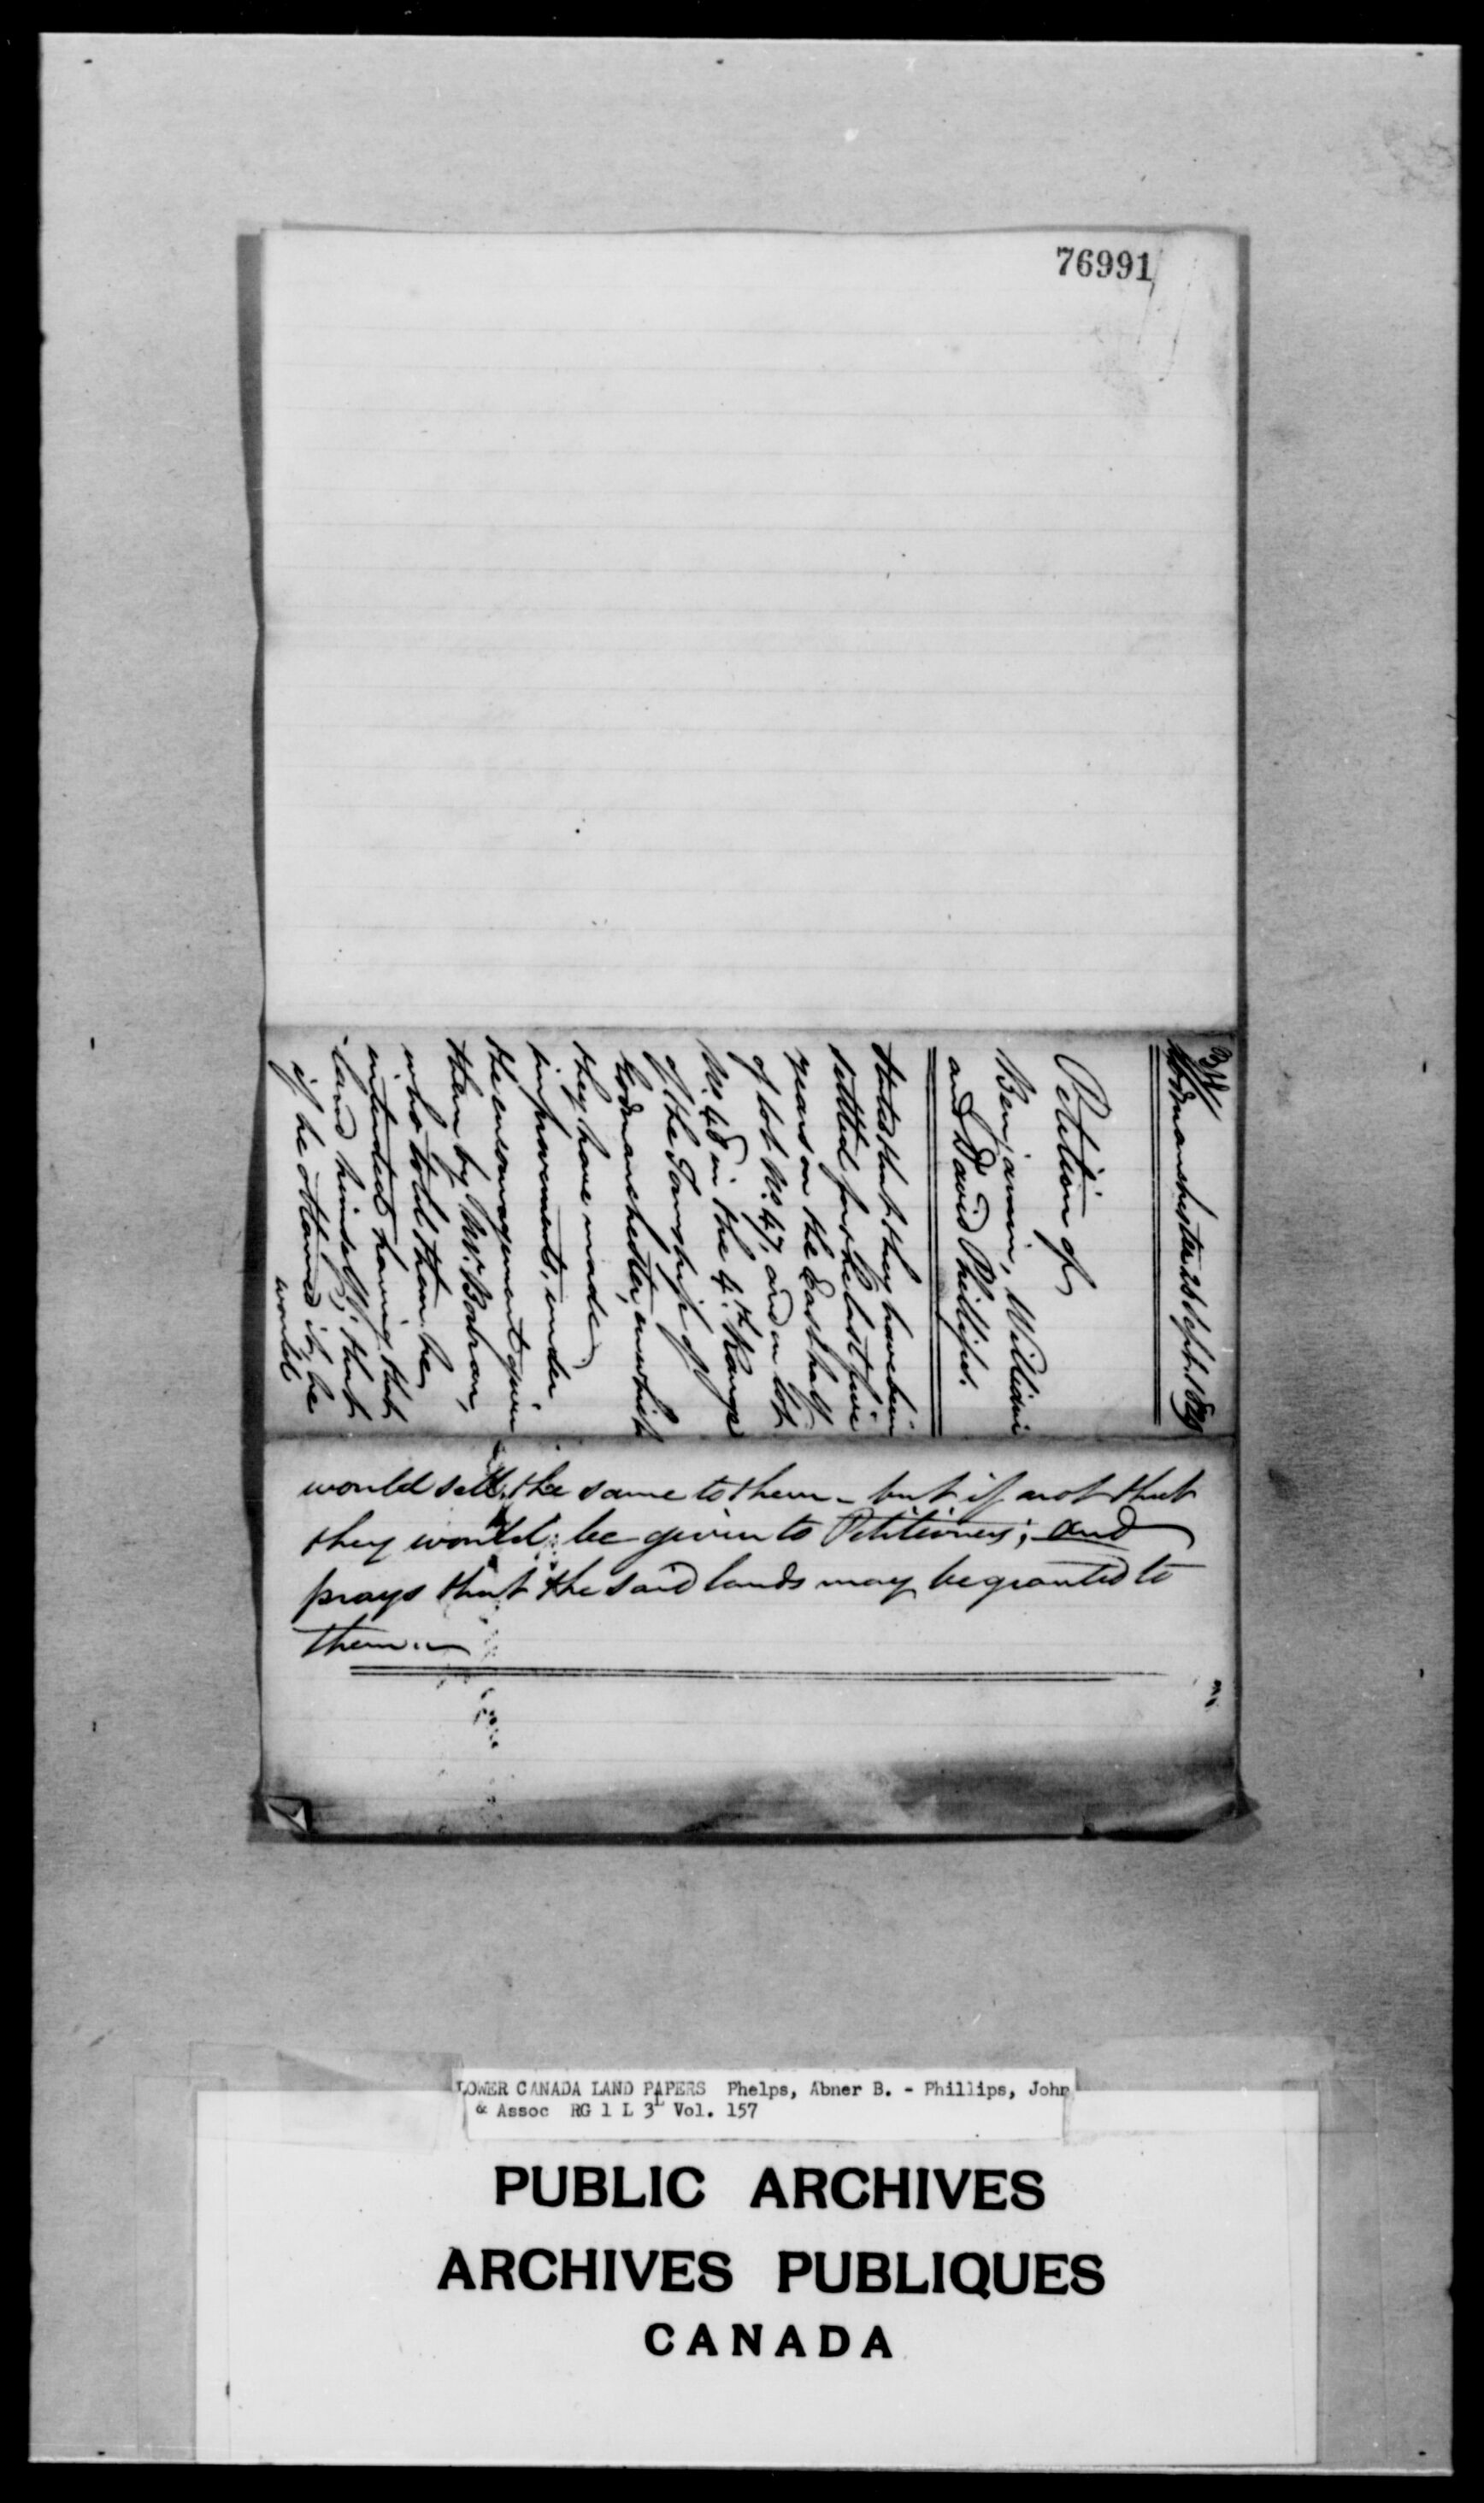 76991
Godmanchester 26 Septr. 1829
Petition of
Benjamin, William
and David Phillips.
States that they have been
settled for the last five
years on the East half
of lot No. 47, and on lot
No. 48 in the 4th Range
of the Township of
Godmanchester, on which
they have made
improvements, under
the encouragement given
them by Mr. Bowron,
who told them he
intended having that
land himself; that
if he obtained it, he
would
would sell the same to them - but if not that
they would be given to Petitioners; and
prays that the said lands may be granted to
them.
LOWER CANADA LAND PAPERS Phelps, Abner B. - Phillips, John
& Assoc RG 1 L 3L Vol. 157
PUBLIC ARCHIVES
ARCHIVES PUBLIQUES
CANADA